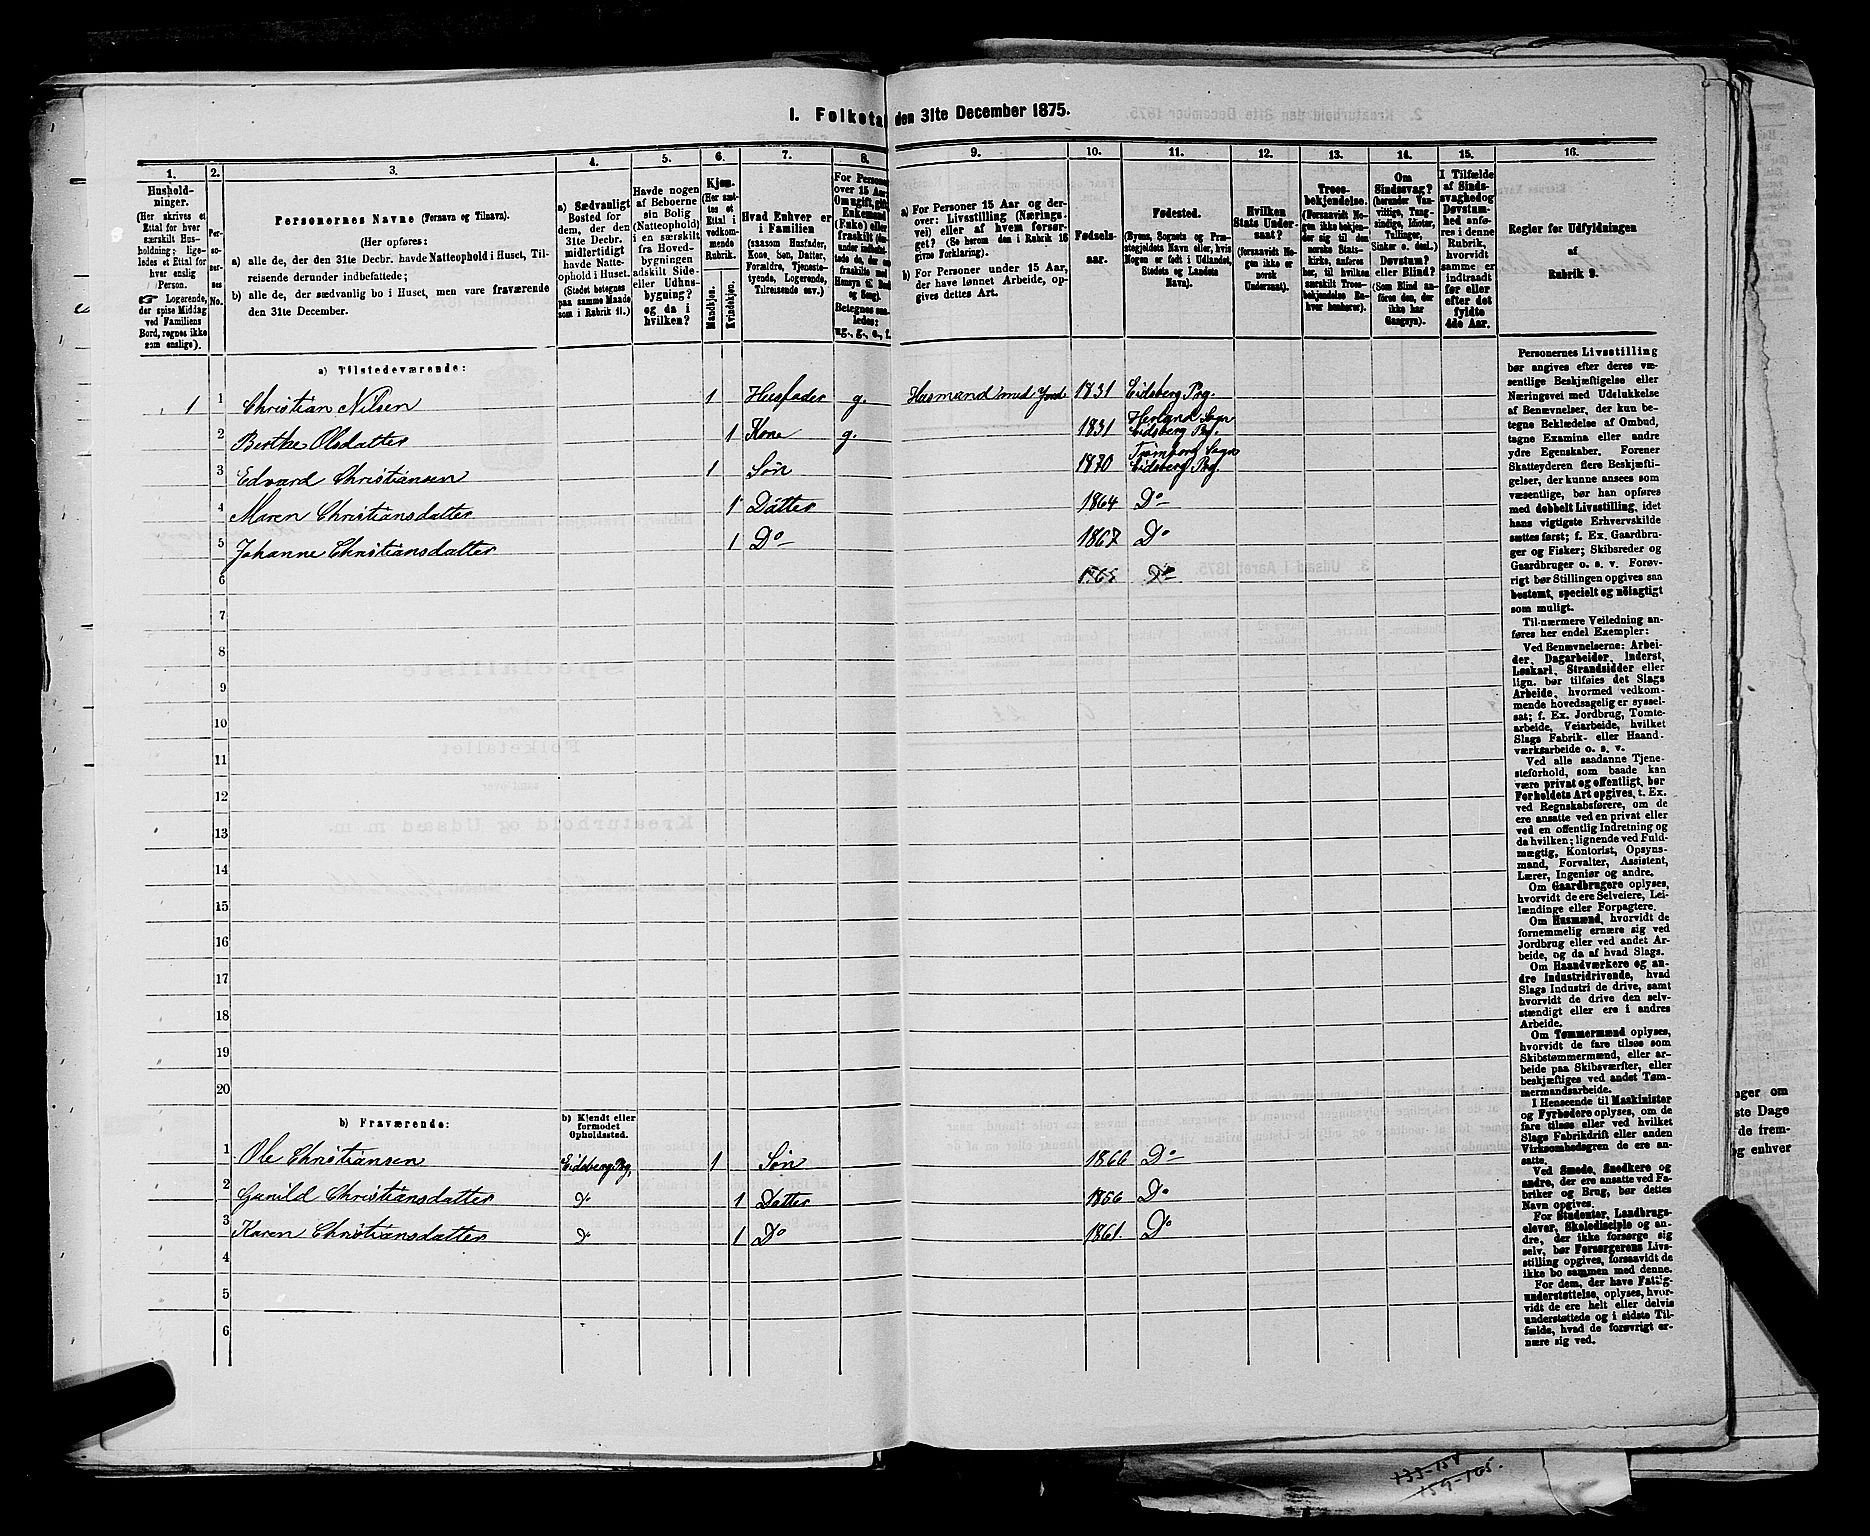 1. Folketal den 31te December 1875.
1. 2. 3. 4. 5. 6. 7. 8. 9. 10. 11. 12. 13. 14. 15. 16.
Hushold-
ninger.
(Her skrives et
Ettal for hver
særskilt Hus-
holdning; lige-
ledes et Ettal for
hver enslig
Person.
Logerende,
der spise Middag
ved Familiens
Bord, regnes ikke
som enslige).
Personernes Navne (Fornavn og Tilnavn).
(Her opføres:
a) alle de, der den 31te Decbr. havde Natteophold i Huset, Til-
reisende derunder indbefattede;
b) alle de, der sædvanlig bo i Huset, men vare fraværende
den 31te December.
a) Sædvanligt
Bosted for
dem, der den
31te Decbr.
midlertidigt
havde Natte-
ophold i Huset.
(Stedet betegnes
paa samme Maade
som i Rubrik 11.)
Havde nogen
af Beboerne
sin Bolig
(Natteophold)
i en særskilt
fra Hoved-
bygningen
adskilt Side-
eller Udhus-
bygning?
og da i
hvilken?
Kjøn.
(Her sæt-
tes et
Ettal i
vedkom-
mende
Rubrik.
Mandkjøn.
Kvindekjøn.
Hvad Enhver er
i Familien
(saasom Husfader,
Kone, Søn, Datter,
Forældre, Tjeneste-
tyende, Logerende,
Tilreisende osv.)
a) For Personer 15 Aar og der-
over: Livsstilling (Nærings-
vei) eller af hvem forsør-
get? (Se herom den i Rubrik 16
givne Forklaring).
b) For Personer under 15 Aar,
der have lønnet Arbeide, op-
gives dettes Art.
Fødsels-
aar.
Fødested.
(Byens, Sognets og Præ-
stegjeldets Navn eller, hvis
Nogen er født i Udlandet,
Stedets og Landets
Navn).
Hvilken
Stats Under-
saat?
(forsaavidt No-
gen ikke er
norsk
Undersaat).
Troes-
bekjendelse.
(Forsaavidt No-
gen ikke bekjen-
der sig til den
norske Stats-
kirke, anføres
her, til hvilken
særskilt Troes-
bekjendelse En-
hver henhører).
Om
Sindssvag?
(herunder Van-
vittige, Tung-
sindige, Idioter,
Tullinger,
Sinker o. desl.)
Døvstum?
eller Blind?
(Som Blind an-
føres den, der
ikke har
Gangsyn).
I Tilfælde
af Sinds-
svaghed og
Døvstum-
hed anfø-
res i denne
Rubrik,
hvorvidt
samme er
indtraadt
før eller
efter det
fyldte
4de Aar.
Regler for Udfyldningen
af
Rubrik 9.
a) Tilstedeværende:
1 1 Christian Nilsen 1 Husfader g. Husmand med Jord 1831 Eidsberg Prg.
Herland Sogn
2 Berthe Olsdatter 1 Kone g. 1831 Eidsberg Prg.
Trømborg Sogn
3 Edvard Christiansen 1 Søn 1870 Eidsberg Prg.
4 Maren Christiansdatter 1 Datter 1864 Do
5 Johanne Christiansdatter 1 Do 1867 Do
6 Do
7
8
9
10
11
12
13
14
15
16
17
18
19
20
b) Fraværende:
b) Kjendt eller
formodet
Opholdssted.
1 Ole Christiansen Eidsberg Prg. 1 Søn 1866 Do
2 Gunild Christiansdatter Do 1 Datter 1856 Do
3 Karen Christiansdatter Do 1 Do 1861. Do
4
5
6
Personernes Livsstilling
bør angives efter deres væ-
sentlige Beskjæftigelse eller
Næringsvei med Udelukkelse
af Benævnelser, der kun be-
tegne Beklædelse af Ombud,
tagne Examina eller andre
ydre Egenskaber. Forener
Skatteyderen flere Beskjæfti-
gelser, der kunne ansees som
væsentlige, bør han opføres
med dobbelt Livsstilling, idet
hans vigtigste Erhvervskilde
sættes først; f. Ex. Gaardbru-
ger og Fisker; Skibsreder og
Gaardbruger o. s. v. Forøv-
rigt bør Stillingen opgives saa
bestemt, specielt og nøiagtigt
som muligt.
Til nærmere Veiledning an-
føres her endel Exempler:
Ved Benævnelserne: Arbei-
der, Dagarbeider, Inderst,
Løskarl, Strandsidder eller
lign. bør tilføies det Slags
Arbeide, hvormed vedkom-
mende hovedsagelig er syssel-
sat; f. Ex. Jordbrug, Tomte-
arbeide, Veiarbeide, hvilket
Slags Fabrik- eller Haand-
værksarbeide o. s. v.
Ved alle saadanne Tjene-
steforhold, som baade kan
være privat og offentligt, bør
Forholdets Art opgives, t. Ex.
ved Regnskabsførere, om de
ere ansatte ved en privat eller
ved en offentlig Indretning og
da hvilken; lignende ved Fuld-
mægtig, Kontorist, Opsyns-
mand, Forvalter, Assistent,
Lærer, Ingeniør og andre.
Om Gaardbrugere oplyses,
hvorvidt de ere Selveiere, Lei-
lændinge eller Forpagtere.
Om Husmænd, hvorvidt de
fornemmelig ernære sig ved
Jordbrug eller ved andet Ar-
beide, og da af hvad Slags.
Om Haandværkere og an-
dre Industridrivende, hvad
Slags Industri de drive, samt
hvorvidt de drive den selv-
stændigt eller ere i andres
Arbeide.
Om Tømmermænd oplyses,
hvorvidt de fare tilsøs som
Skibstømmermænd, eller ar-
beide paa Skibsværfter, eller
beskjæftiges ved andet Tøm-
mermandsarbeide.
I Henseende til Maskinister
og Fyrbødere oplyses, om de
fare tilsøs eller ved hvilket
Slags Fabrikdrift eller anden
Virksomhedsgren de ere an-
satte.
Ved Smede, Snedkere og
andre, der ere ansatte ved Fa-
briker og Brug, bør dettes
Navn opgives.
For Studenter, Landbrugs-
elever, Skoledisciple og an-
dre, der ikke forsørge sig
selv, bør Forsørgerens Livs-
stilling opgives, forsaavidt de
ikke bo sammen med denne.
For dem, der have Fattig-
understøttelse, oplyses, hvor-
vidt de ere helt eller delvis
understøttede og i sidste Til-
fælde, hvad de forøvrigt er-
nære sig ved.
133-158
159-165.